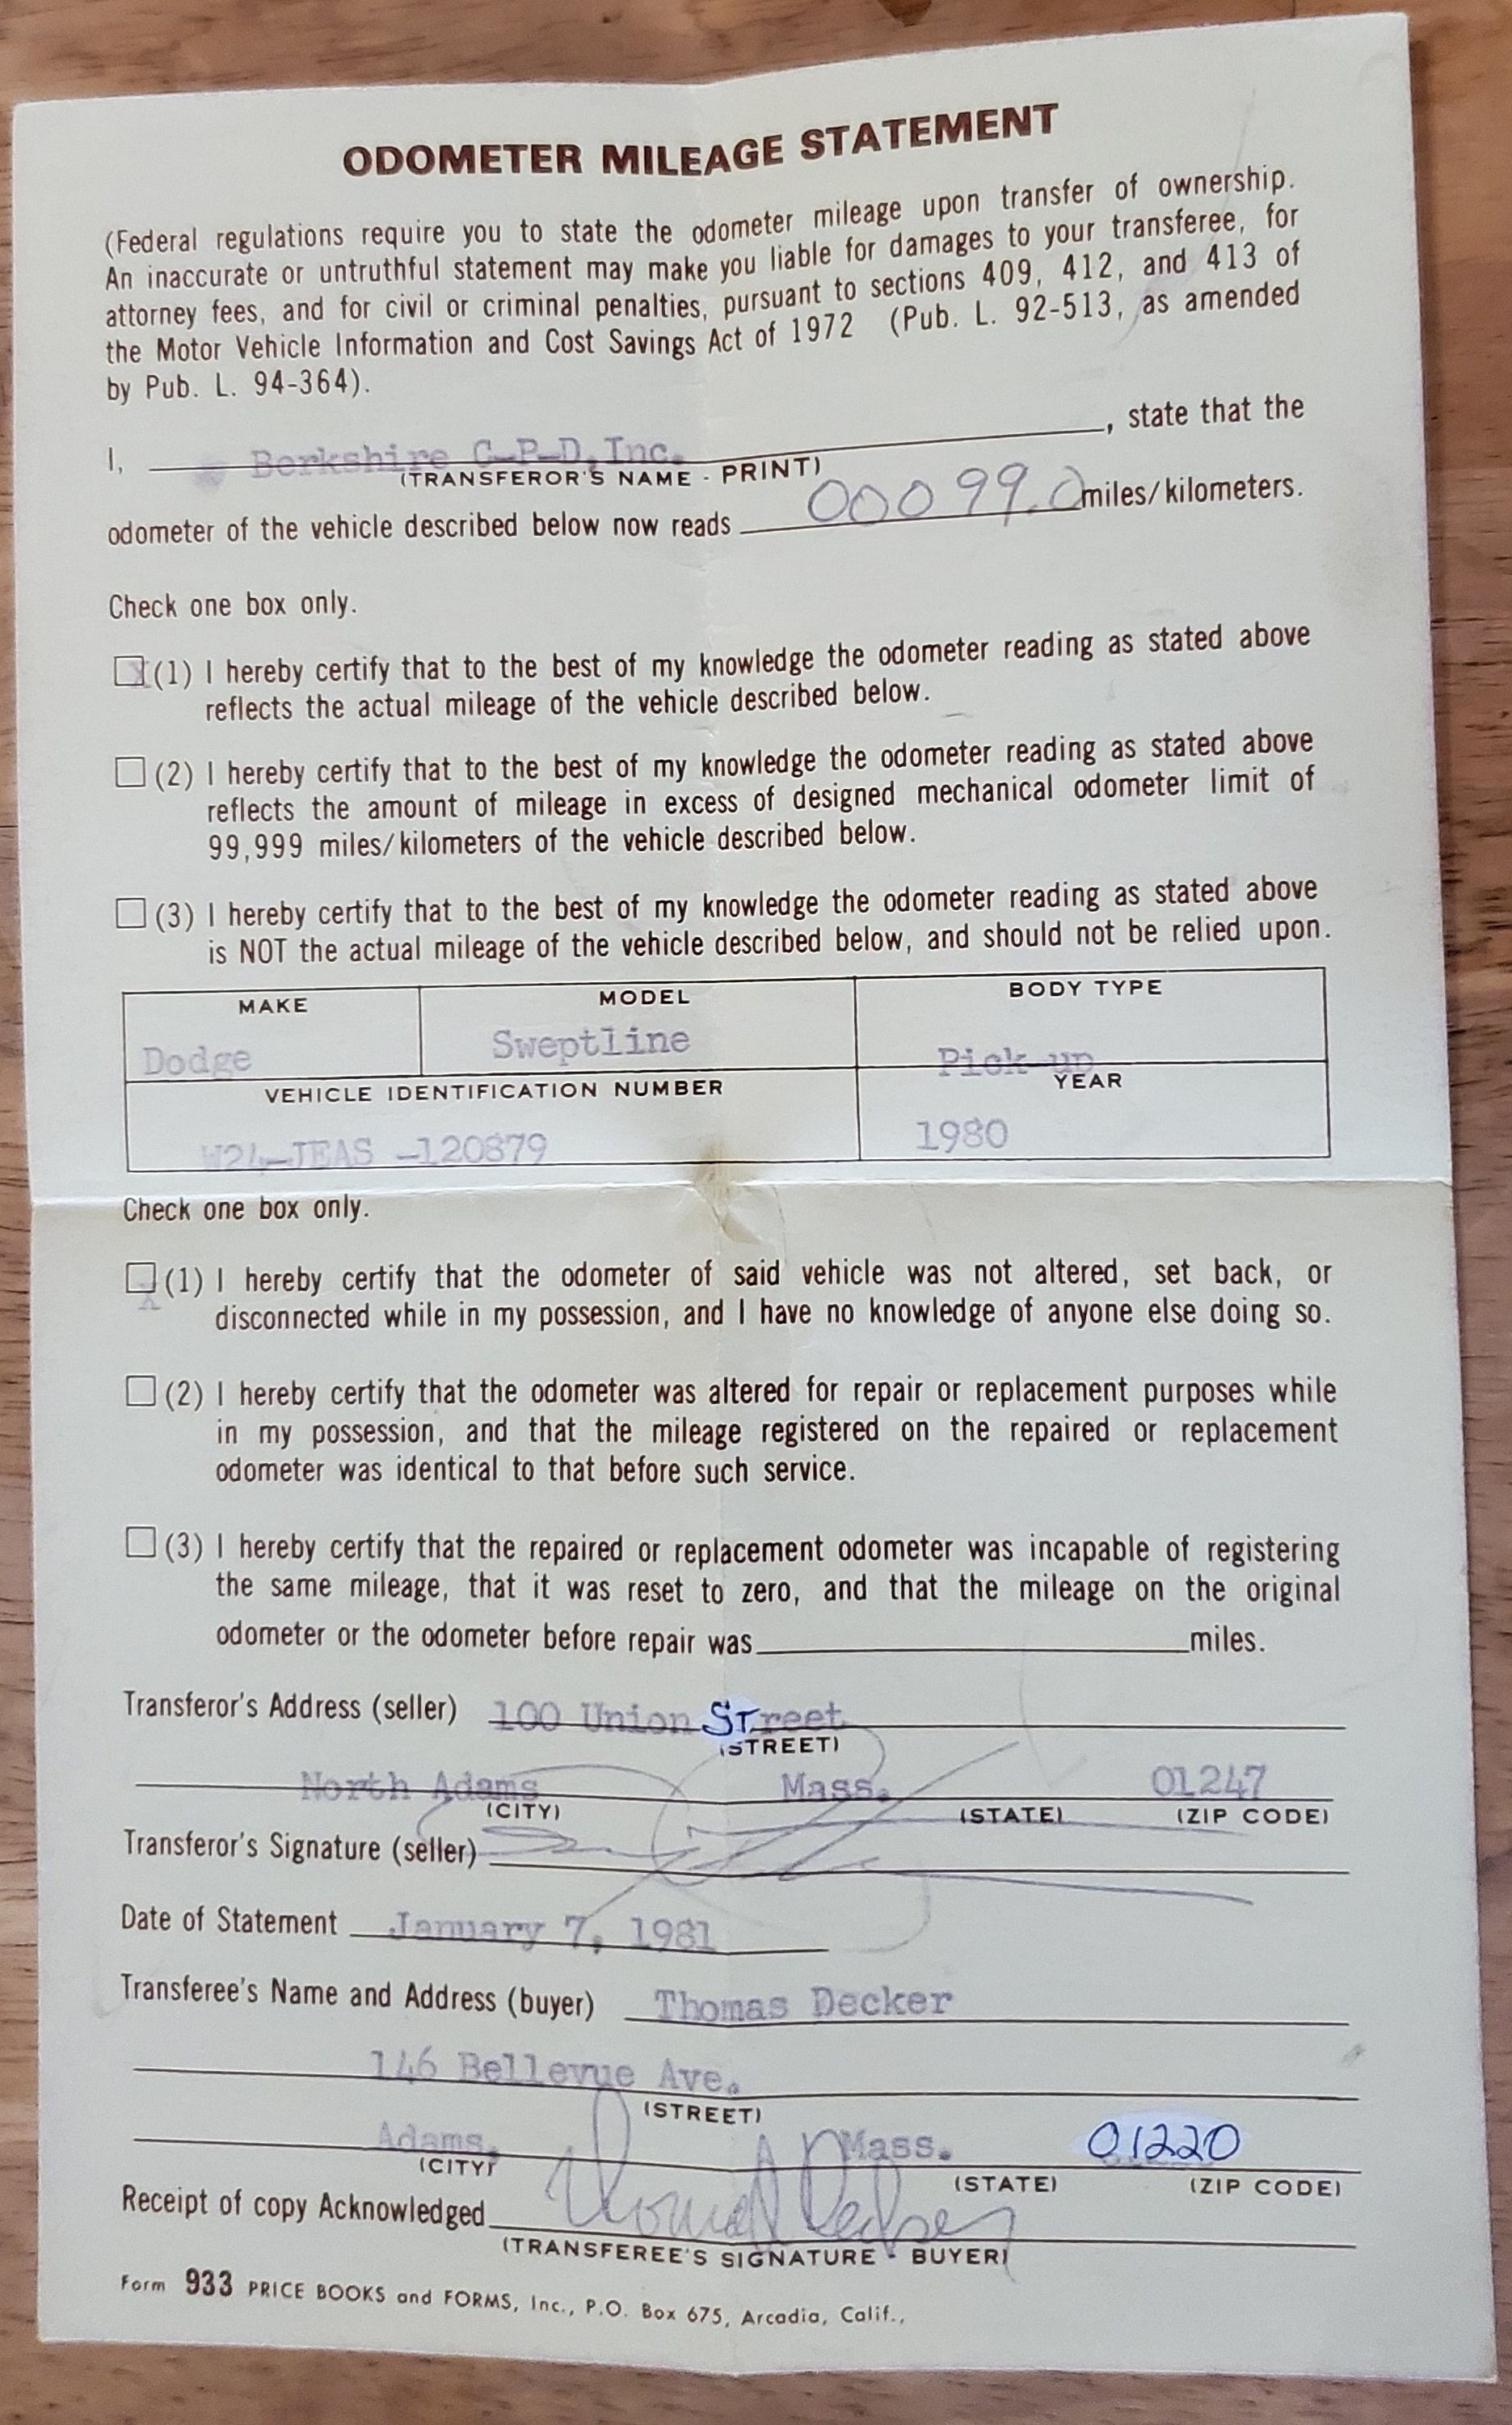 ODOMETER MILEAGE STATEMENT
(Federal regulations require you to state the odometer mileage upon transfer of ownership.
An inaccurate or untruthful statement may make you liable for damages to your transferee, for
attorney fees, and for civil or criminal penalties, pursuant to sections 409, 412, and 413 of
the Motor Vehicle Information and Cost Savings Act of 1972 (Pub. L. 92-513, as amended
by Pub. L. 94-364).
I, Berkshire C-P-D, Inc., state that the
(TRANSFEROR'S NAME - PRINT)
odometer of the vehicle described below now reads 00099.0 miles/kilometers.
Check one box only.
(1) I hereby certify that to the best of my knowledge the odometer reading as stated above
reflects the actual mileage of the vehicle described below.
(2) I hereby certify that to the best of my knowledge the odometer reading as stated above
reflects the amount of mileage in excess of designed mechanical odometer limit of
99,999 miles/kilometers of the vehicle described below.
(3) I hereby certify that to the best of my knowledge the odometer reading as stated above
is NOT the actual mileage of the vehicle described below, and should not be relied upon.
MAKE MODEL BODY TYPE
Dodge Sweptline Pick-up
VEHICLE IDENTIFICATION NUMBER YEAR
W24-JEAS -120879 1980
Check one box only.
(1) I hereby certify that the odometer of said vehicle was not altered, set back, or
disconnected while in my possession, and I have no knowledge of anyone else doing so.
(2) I hereby certify that the odometer was altered for repair or replacement purposes while
in my possession, and that the mileage registered on the repaired or replacement
odometer was identical to that before such service.
(3) I hereby certify that the repaired or replacement odometer was incapable of registering
the same mileage, that it was reset to zero, and that the mileage on the original
odometer or the odometer before repair was miles.
Transferor's Address (seller) 100 Union Street
(STREET)
North Adams Mass. 01247
(CITY) (STATE) (ZIP CODE)
Transferor's Signature (seller)
Date of Statement January 7, 1981
Transferee's Name and Address (buyer) Thomas Decker
146 Bellevue Ave.
(STREET)
Adams, Mass. 01220
(CITY) (STATE) (ZIP CODE)
Receipt of copy Acknowledged Thomas Decker
(TRANSFEREE'S SIGNATURE - BUYER)
Form 933 PRICE BOOKS and FORMS, Inc., P.O. Box 675, Arcadia, Calif.,